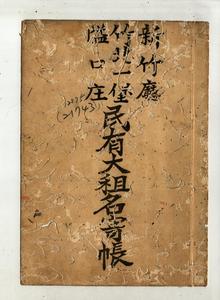 新竹廳
竹北一堡
隘口庄
民有大租名寄帳
(21743)